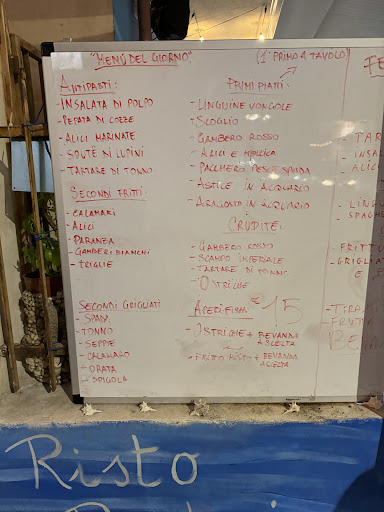 "MENÙ DEL GIORNO"
(1° PRIMO A TAVOLO)
ANTIPASTI:
- INSALATA DI POLPO
- PEPATA DI COZZE
- ALICI MARINATE
- SOUTÈ DI LUPINI
- TARTARE DI TONNO
SECONDI FRITTI:
- CALAMARI
- ALICI
- PARANZA
- GAMBERI BIANCHI
- TRIGLIE
SECONDI GRIGLIATI
- SPADA
- TONNO
- SEPPIE
- CALAMARO
- ORATA
- SPIGOLA
PRIMI PIATTI:
- LINGUINE VONGOLE
- SCOGLIO
- GAMBERO ROSSO
- ALICI E MOLLICA
- PACCHERO PESCE SPADA
- ASTICE IN ACQUARIO
- ARAGOSTA IN ACQUARIO
CRUDITÈ:
- GAMBERO ROSSO
- SCAMPO IMPERIALE
- TARTARE DI TONNO
- OSTRICHE
APERIFISH €15
- OSTRICHE + BEVANDA
A SCELTA
- FRITTO MISTO + BEVANDA
A SCELTA
FE
- TAR
- INSA
- ALIC
- LINGU
- SPAGH
- FRITTU
- GRIGLIAT
E
- TIRAM
- FRUTTA
BE
Risto